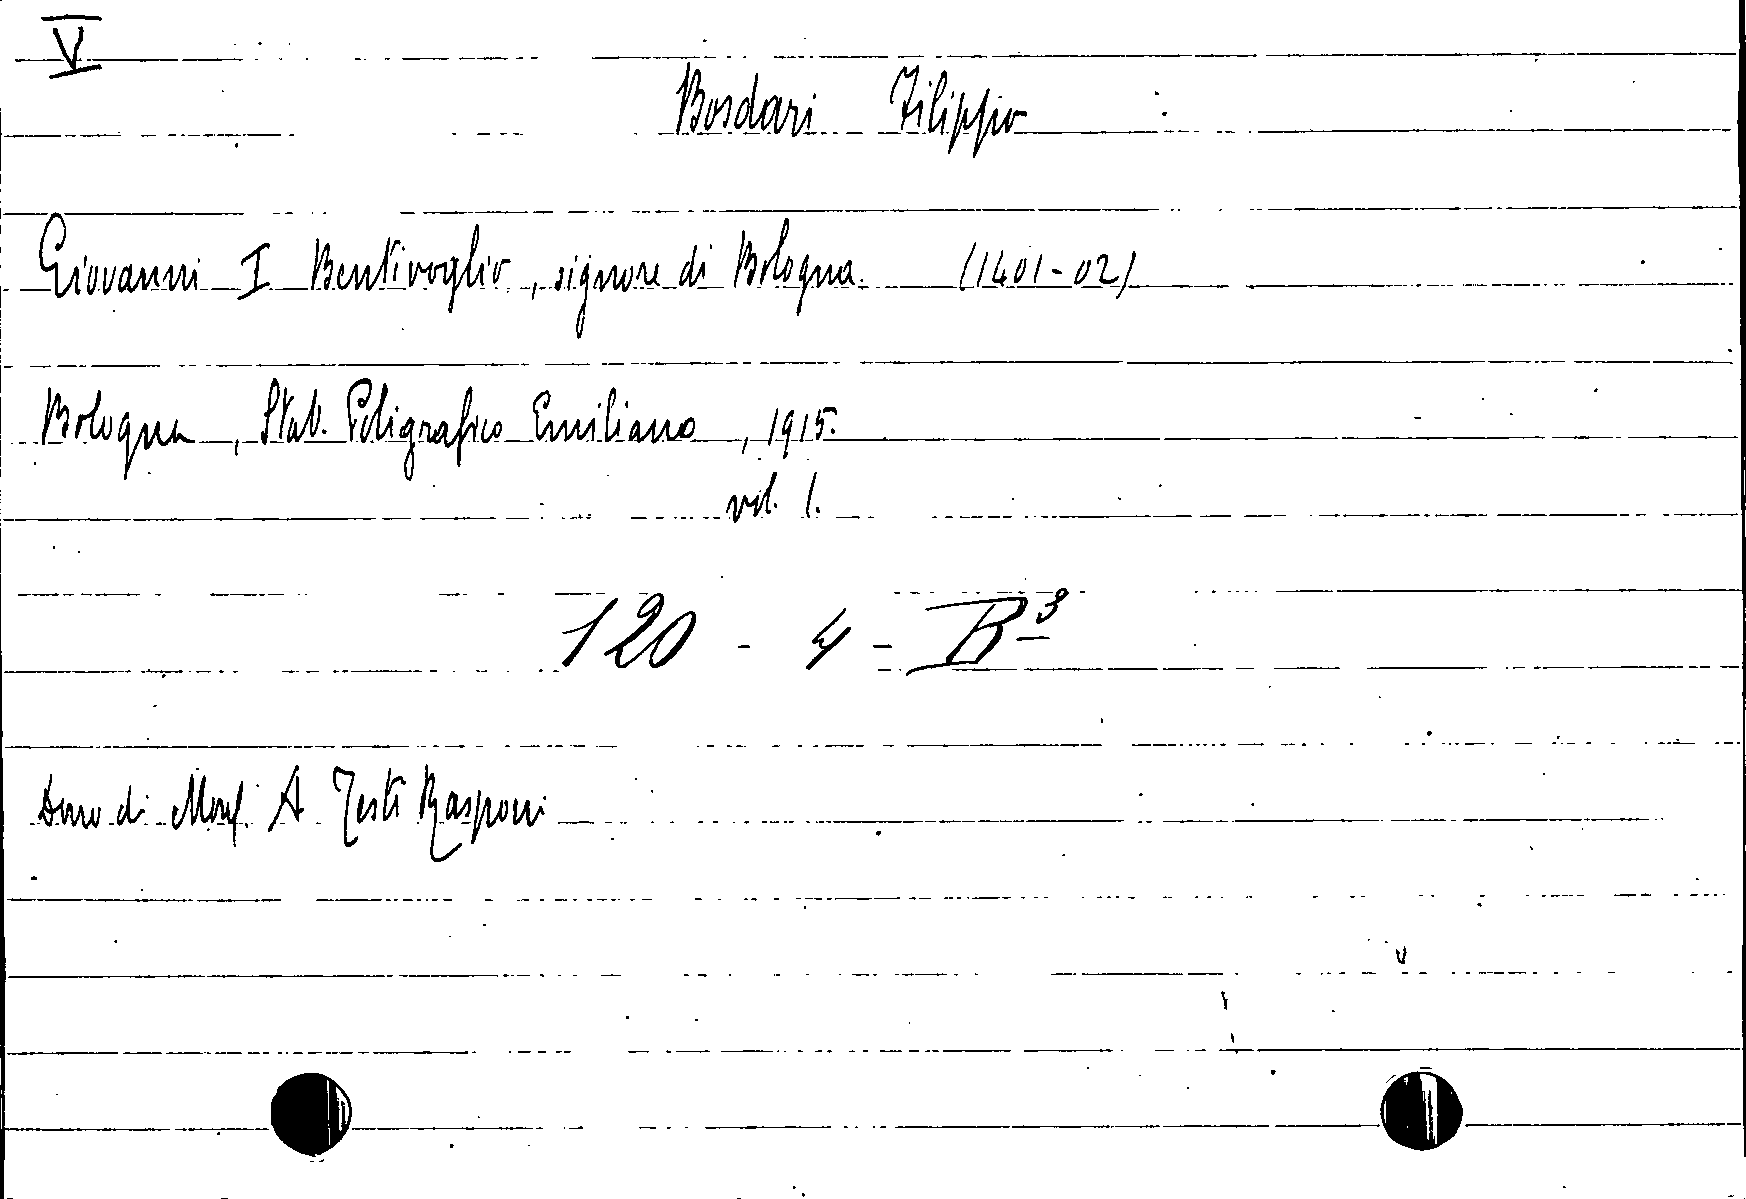 V
Bosdari Filippo
Giovanni I Bentivoglio, signore di Bologna. (1401-02)
Bologna, Stab. Poligrafico Emiliano, 1915.
vol. 1.
120 - 4 - B³
Dono di Mons. A Testi Rasponi